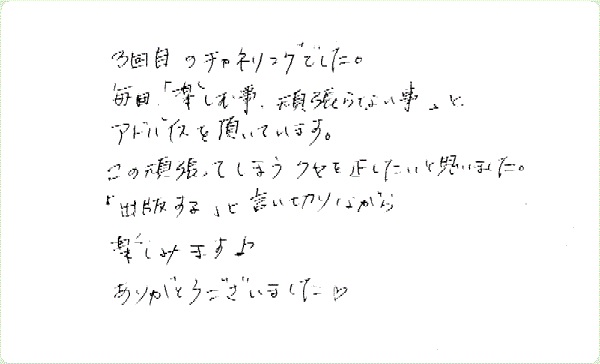 3回目のチャネリングでした。
毎回、「楽しむ事、頑張らない事」と
アドバイスを頂いています。
この頑張ってしまうクセを正したいと思いました。
「出版する」と言い切りながら
楽しみます♪
ありがとうございました♡